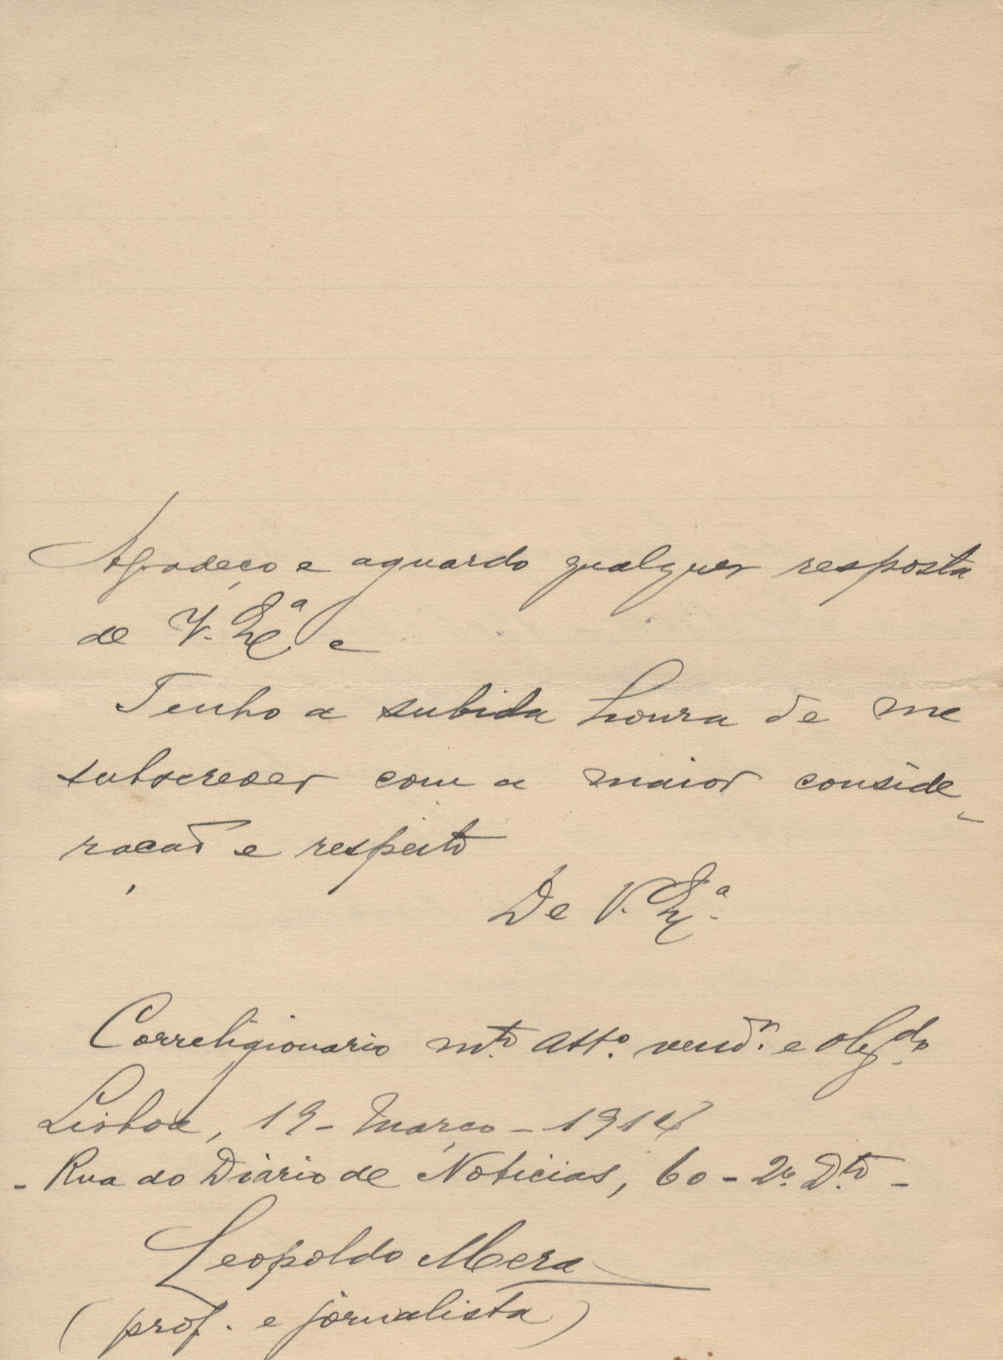 Agradeço e aguardo qualquer resposta
de V. Exª e
Tenho a subida honra de me
subscrever com a maior conside-
ração e respeito
De V. Exª.
Correligionario mtº attº. vendʳ. e obgdº
Lisboa, 19 - Março - 1914
- Rua do Diário de Noticias, 60 - 2º. Dtº -
Leopoldo Mera
(prof. e jornalista)